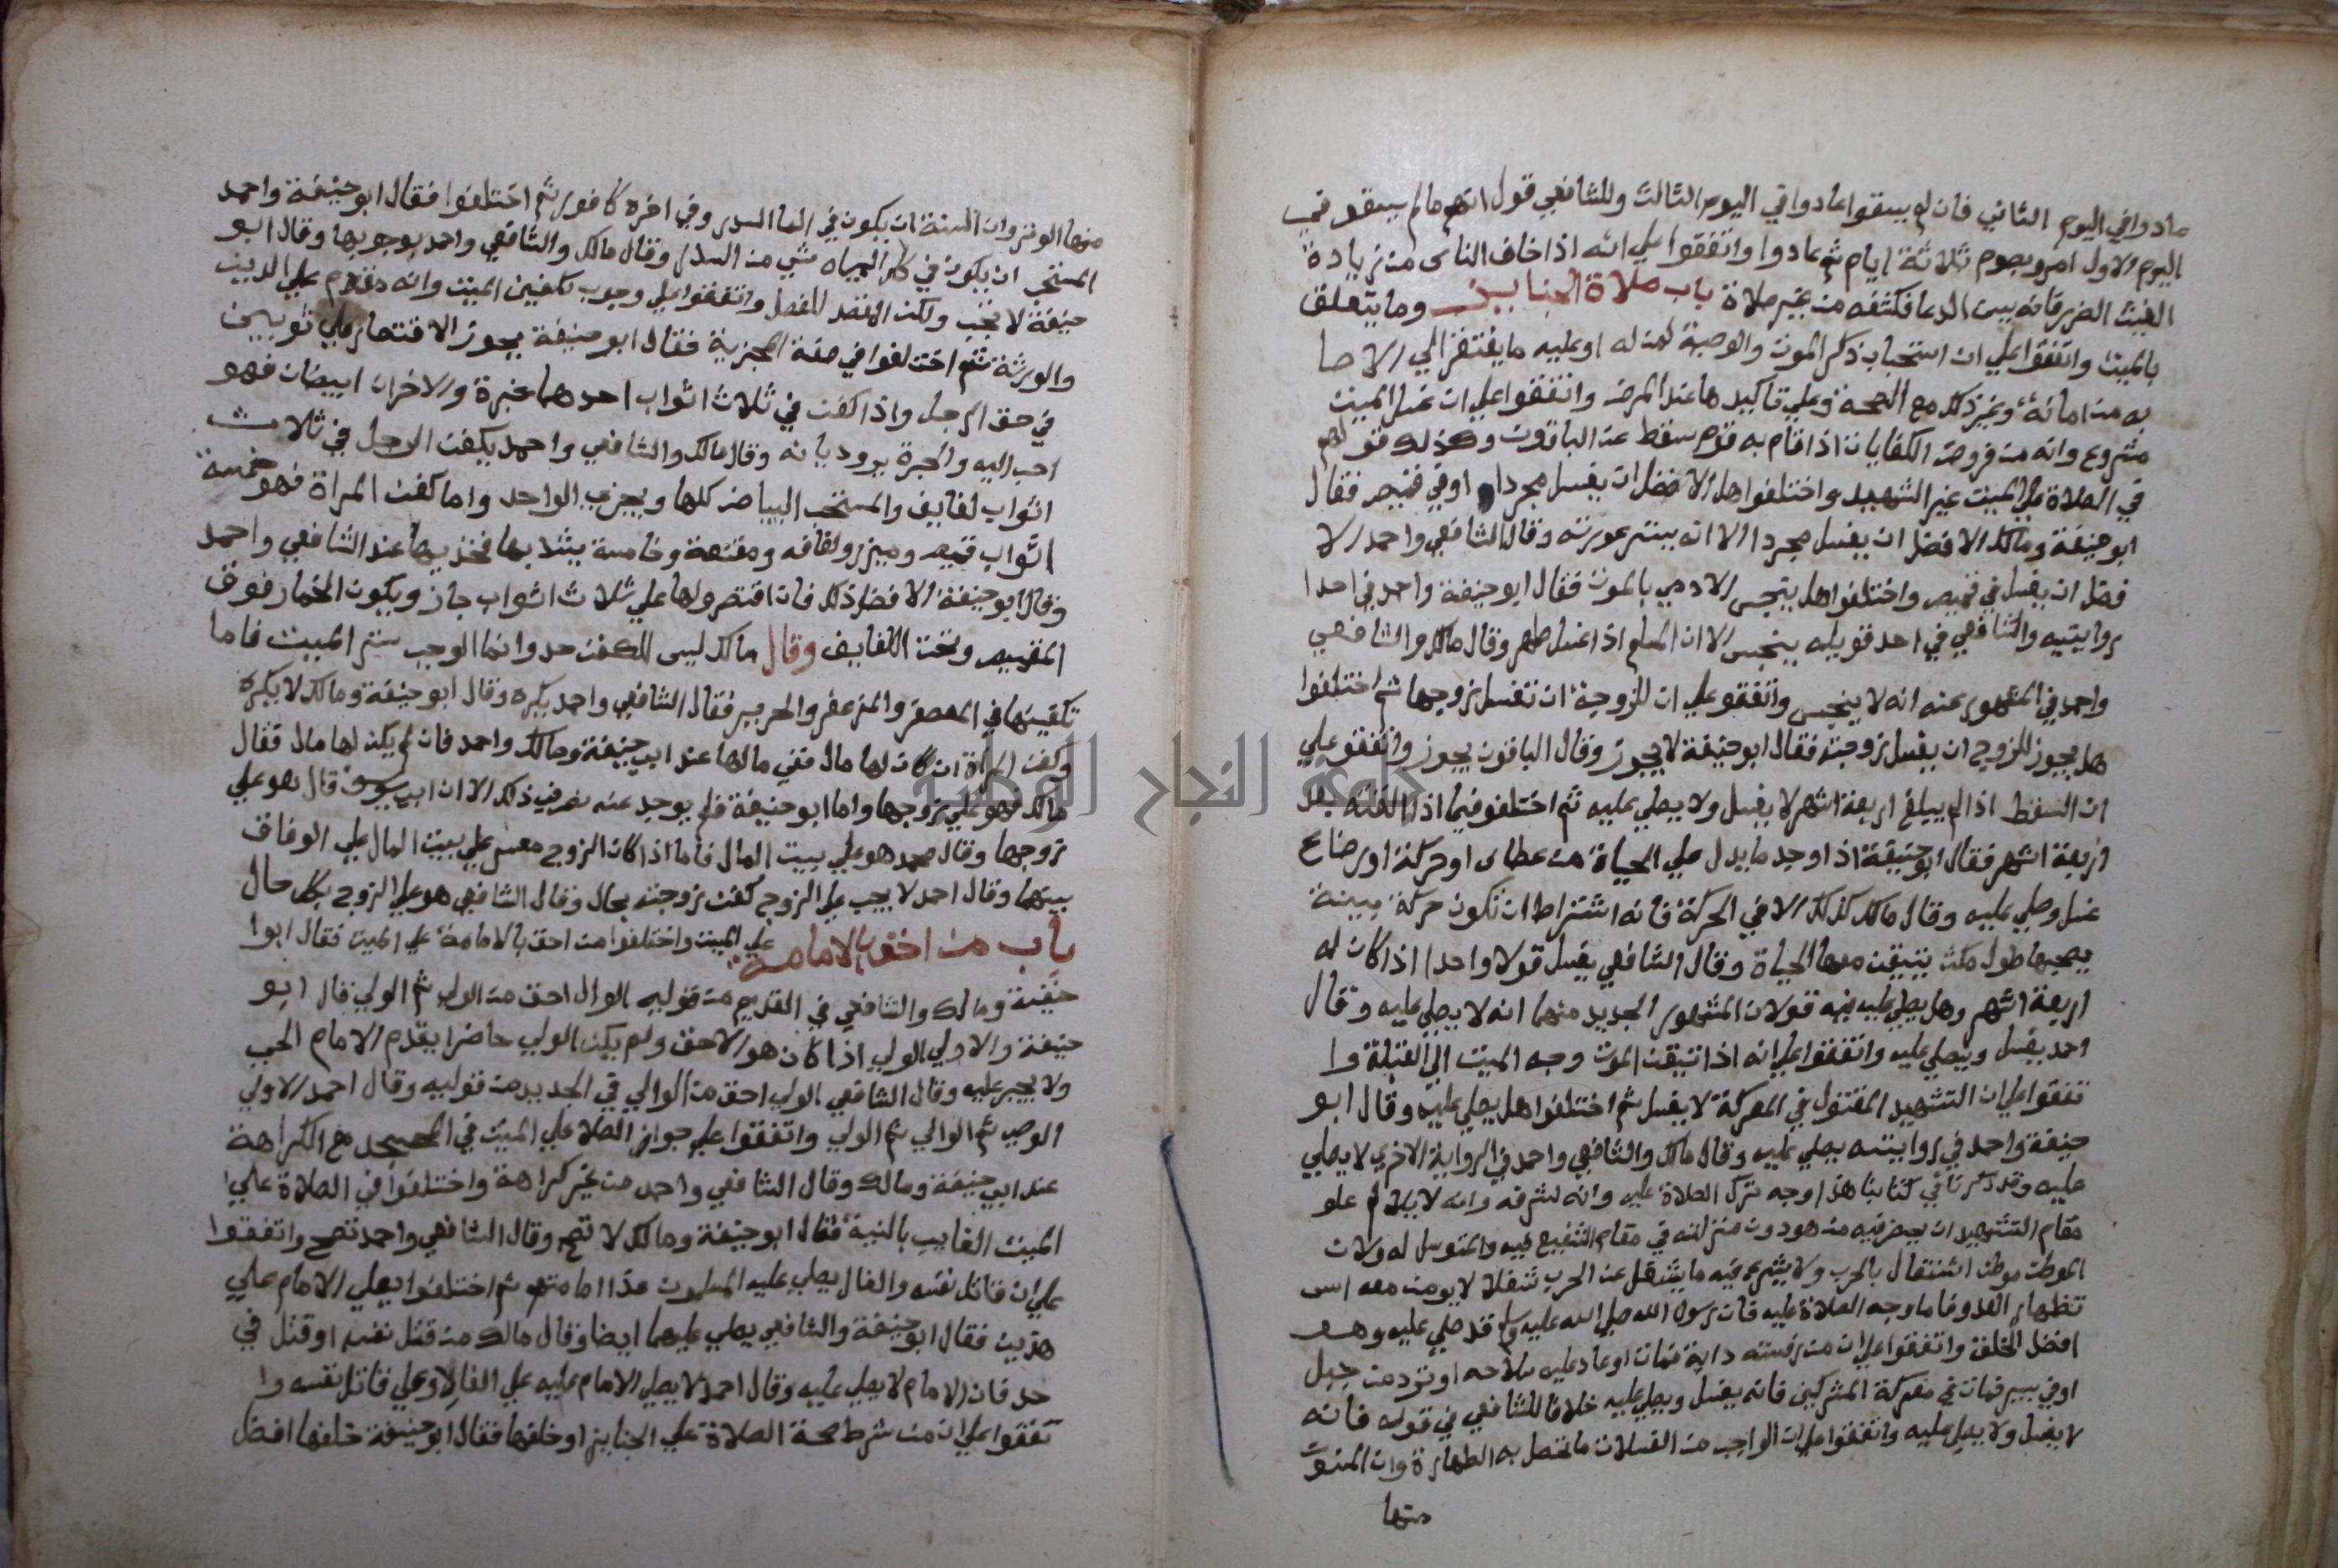 عادوا في اليوم الثاني فان لم يسقوا عادوا في اليوم الثالث وللشافعي قول انهم ما لم يسقو في
اليوم الاول امر بصوم ثلاثة ايام ثم عادوا واتفقوا علي انه اذا خاف الناس من زيادة
الغيث الضرر فانه يسن الدعا فكشفه من غير صلاة باب صلاة الجنايز وما يتعلق
بالميت واتفقوا علي ان استحباب ذكر الموت والوصية لمن له او عليه ما يفتقر الي الاصا
به من امانة وغير ذلك مع الصحة وعلي تاكيدها عند المرض واتفقوا علي ان غسل الميت
مشروع وانه من فروض الكفايات اذا قام به قوم سقط عن الباقون وكذلك قولهم
في الصلاة علي الميت غير الشهيد واختلفوا هل الافضل ان يغسل مجردا او في قميص فقال
ابو حنيفة ومالك الافضل ان يغسل مجردا الا انه يستر عورته وقال الشافعي واحمد الا
فضل ان يغسل في قميص واختلفوا هل ينجس الادمي بالموت فقال ابو حنيفة واحمد في احدا
روايتيه والشافعي في احد قوليه ينجس الا ان المسلم اذا غسل طهر وقال مالك والشافعي
واحمد في المشهور عنه انه لا ينجس واتفقو علي ان للزوجة ان تغسل زوجها ثم اختلفوا
هل يجوز للزوج ان يغسل زوجته فقال ابو حنيفة لا يجوز وقال الباقون يجوز واتفقو علي
ان السقط اذا لم يبلغ اربعة اشهر لا يغسل ولا يصلي عليه ثم اختلفو فيما اذا القته بعد
اربعة اشهر فقال ابو حنيفة اذا وجد ما يدل علي الحياة من عطاس او حركة او رضاع
غسل وصلي عليه وقال مالك كذلك الا في الحركة فانه اشتراط ان تكون حركة مبينة
يصحبها طول مكث يتيقن معها الحياة وقال الشافعي يغسل قولا واحدا اذا كان له
اربعة اشهر وهل يصلي عليه فيه قولان المشهور الجديد منهما انه لا يصلي عليه وقال
احمد يغسل ويصلي عليه واتفقوا علي انه اذا تيقن الموت وجه الميت الي القبلة وا
تفقوا علي ان الشهيد المقتول في المعركة لا يغسل ثم اختلفوا هل يصلي عليه وقال ابو
حنيفة واحمد في روايته يصلي عليه وقال مالك والشافعي واحمد في الرواية الاخري لا يصلي
عليه وقد ذكرنا في كتابنا هذا وجه ترك الصلاة عليه وانه لشرفه وانه لا يلايم علو
مقام الشهيد ان يحضر فيه من هو دون منزلته في مقام الشفيع فيه والمتوسل له ولان
الموطن موطن اشتغال بالحرب ولا يشرع فيه ما يشغل عن الحرب شغلا لا يومن معه اس
تظهار العدو فاما وجه الصلاة عليه فان رسول الله صلي الله عليه وسلم قد صلي عليه وهو
افضل الخلق واتفقوا علي ان من رفسته دابة فمات او عاد عليه سلاحه او تردا من جبل
او في بير فمات في معركة المشركين فانه يغسل ويصلي عليه خلافا للشافعي في قوله فانه
لا يغسل ولا يصلي عليه واتفقوا علي ان الواجب من الغسلات ما تحصل به الطهارة وان المسنون
منها
منها الوتر وان السنة ان يكون في الما السدر وفي اخره كافور ثم اختلفوا فقال ابو حنيفة واحمد
المستحب ان يكون في كل المياه شي من السدر وقال مالك والشافعي واحمد بوجوبها وقال ابو
حنيفة لا تجب ولكن واتفقوا علي وجوب تكفين الميت وانه مقدم علي الدين
والورثة ثم اختلفوا في صفة المجزية فقال ابو حنيفة يجوز الاقتصار علي ثوبين
في حق الرجل واذا كفن في ثلاث اثواب احدهما حبرة والاخران ابيضان فهو
احب اليه والحبرة برود يمانه وقال مالك والشافعي واحمد يكفن الرجل في ثلاث
اثواب لفايف والمستحب البياض كلها ويجزي الواحد واما كفن المراة فهو خمسة
اثواب قميص وميزر ولفافه ومقنعة وخامسة يشد بها فخذيها عند الشافعي واحمد
وقال ابو حنيفة الافضل ذلك فان اقتصر ولها علي ثلاث اثواب جاز ويكون الخمار فوق
القميص وتحت اللفايف وقال مالك ليس للكفن حد وانما الواجب ستر الميت فاما
تكفينها في المعصفر والمزعفر والحرير فقال الشافعي واحمد يكره وقال ابو حنيفة ومالك لا يكره
وكفن المراة ان كان لها مال ففي مالها عند ابي حنيفة ومالك واحمد فان لم يكن لها مال فقال
مالك فهو علي زوجها واما ابو حنيفة فلم يوجد عنه نص في ذلك الا ان ابو يوسف قال هو علي
زوجها وقال محمد هو علي بيت المال فاما اذا كان الزوج معسر علي بيت المال علي الوفاق
بينهما وقال احمد لا يجب علي الزوج كفن زوجته بحال وقال الشافعي هو علي الزوج بكل حال
باب من احق بالامامة علي الميت واختلفوا من احق بالامامة علي الميت فقال ابوا
حنيفة ومالك والشافعي في القديم من قوليه الوال احق من الولي ثم الولي قال ابو
حنيفة والاولي الولي اذا كان هو الاحق ولم يكن الولي حاضرا يقدم الامام الحي
ولا يجبر عليه وقال الشافعي الولي احق من الوالي في الجديد من قوليه وقال احمد الاولي
الوصي ثم الوالي ثم الولي واتفقوا علي جواز الصلاة علي الميت في المسجد مع الكراهة
عند ابي حنيفة ومالك وقال الشافعي واحمد من غير كراهة واختلفوا في الصلاة علي
الميت الغايب بالنية فقال ابو حنيفة ومالك لا تصح وقال الشافعي واحمد تصح واتفقوا
علي ان قاتل نفسه والغال يصلي عليه المسلمون عدا امامهم ثم اختلفوا يصلي الامام علي
هذين فقال ابو حنيفة والشافعي يصلي عليهما ايضا وقال مالك من قتل نفسه او قتل في
حد فان الامام لا يصلي عليه وقال احمد لا يصلي الامام عليه علي الغال وعلي قاتل نفسه وا
تفقوا علي ان من شرط صحة الصلاة علي الجنايز او خلفها فقال ابو حنيفة خلفها افضل
جامعة النجاح الوطنية